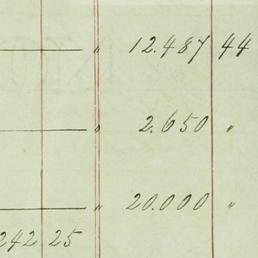 " 12.487 44
" 2.650 "
" 20.000 "
242 25